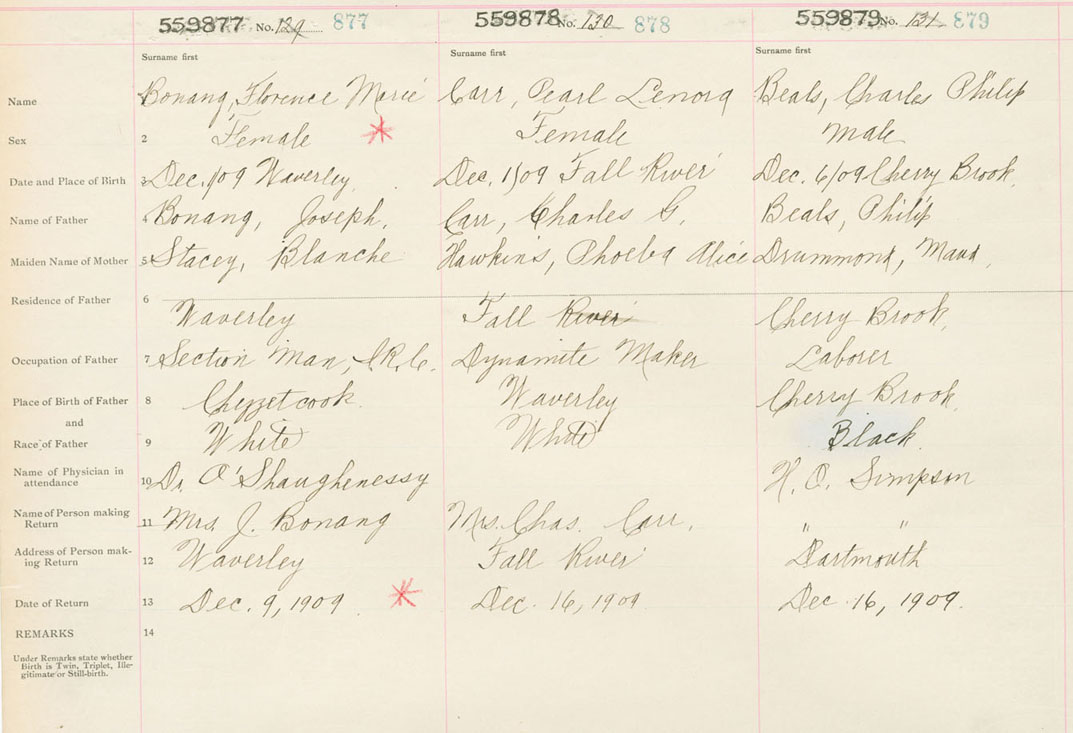 559877 No. 129 877 559878 No. 130 878 559879 No. 131 879
Surname first Surname first Surname first
Name Bonang, Florence Marie Carr, Pearl Lenora Beals, Charles Philip
Sex 2 Female * Female Male
Date and Place of Birth 3 Dec. 1/09 Waverley. Dec. 1/09 Fall River Dec. 6/09 Cherry Brook.
Name of Father 4 Bonang, Joseph. Carr, Charles G. Beals, Philip
Maiden Name of Mother 5 Stacey, Blanche Hawkins, Phoeba Alice Drummond, Maud.
Residence of Father 6 Waverley Fall River Cherry Brook.
Occupation of Father 7 Section Man, I.R.C. Dynamite Maker Laborer
Place of Birth of Father 8 Chezzetcook. Waverley Cherry Brook.
and
Race of Father 9 White White Black.
Name of Physician in
attendance 10 Dr. O'Shaughenessy H. O. Simpson
Name of Person making
Return 11 Mrs. J. Bonang Mrs. Chas. Carr. " "
Address of Person mak-
ing Return 12 Waverley Fall River Dartmouth
Date of Return 13 Dec. 9, 1909 * Dec. 16, 1909. Dec. 16, 1909.
REMARKS 14
Under Remarks state whether
Birth is Twin, Triplet, Ille-
gitimate or Still-birth.